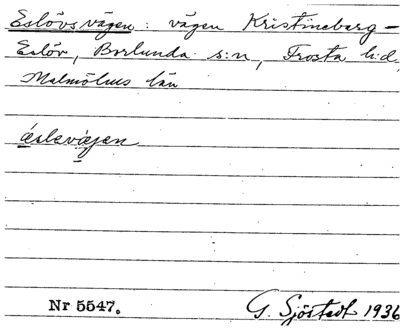 Eslövsvägen: vägen Kristineberg -
Eslöv, Borlunda s:n, Frosta h:d,
Malmöhus län
Nr 5547.
G. Sjöstedt 1936